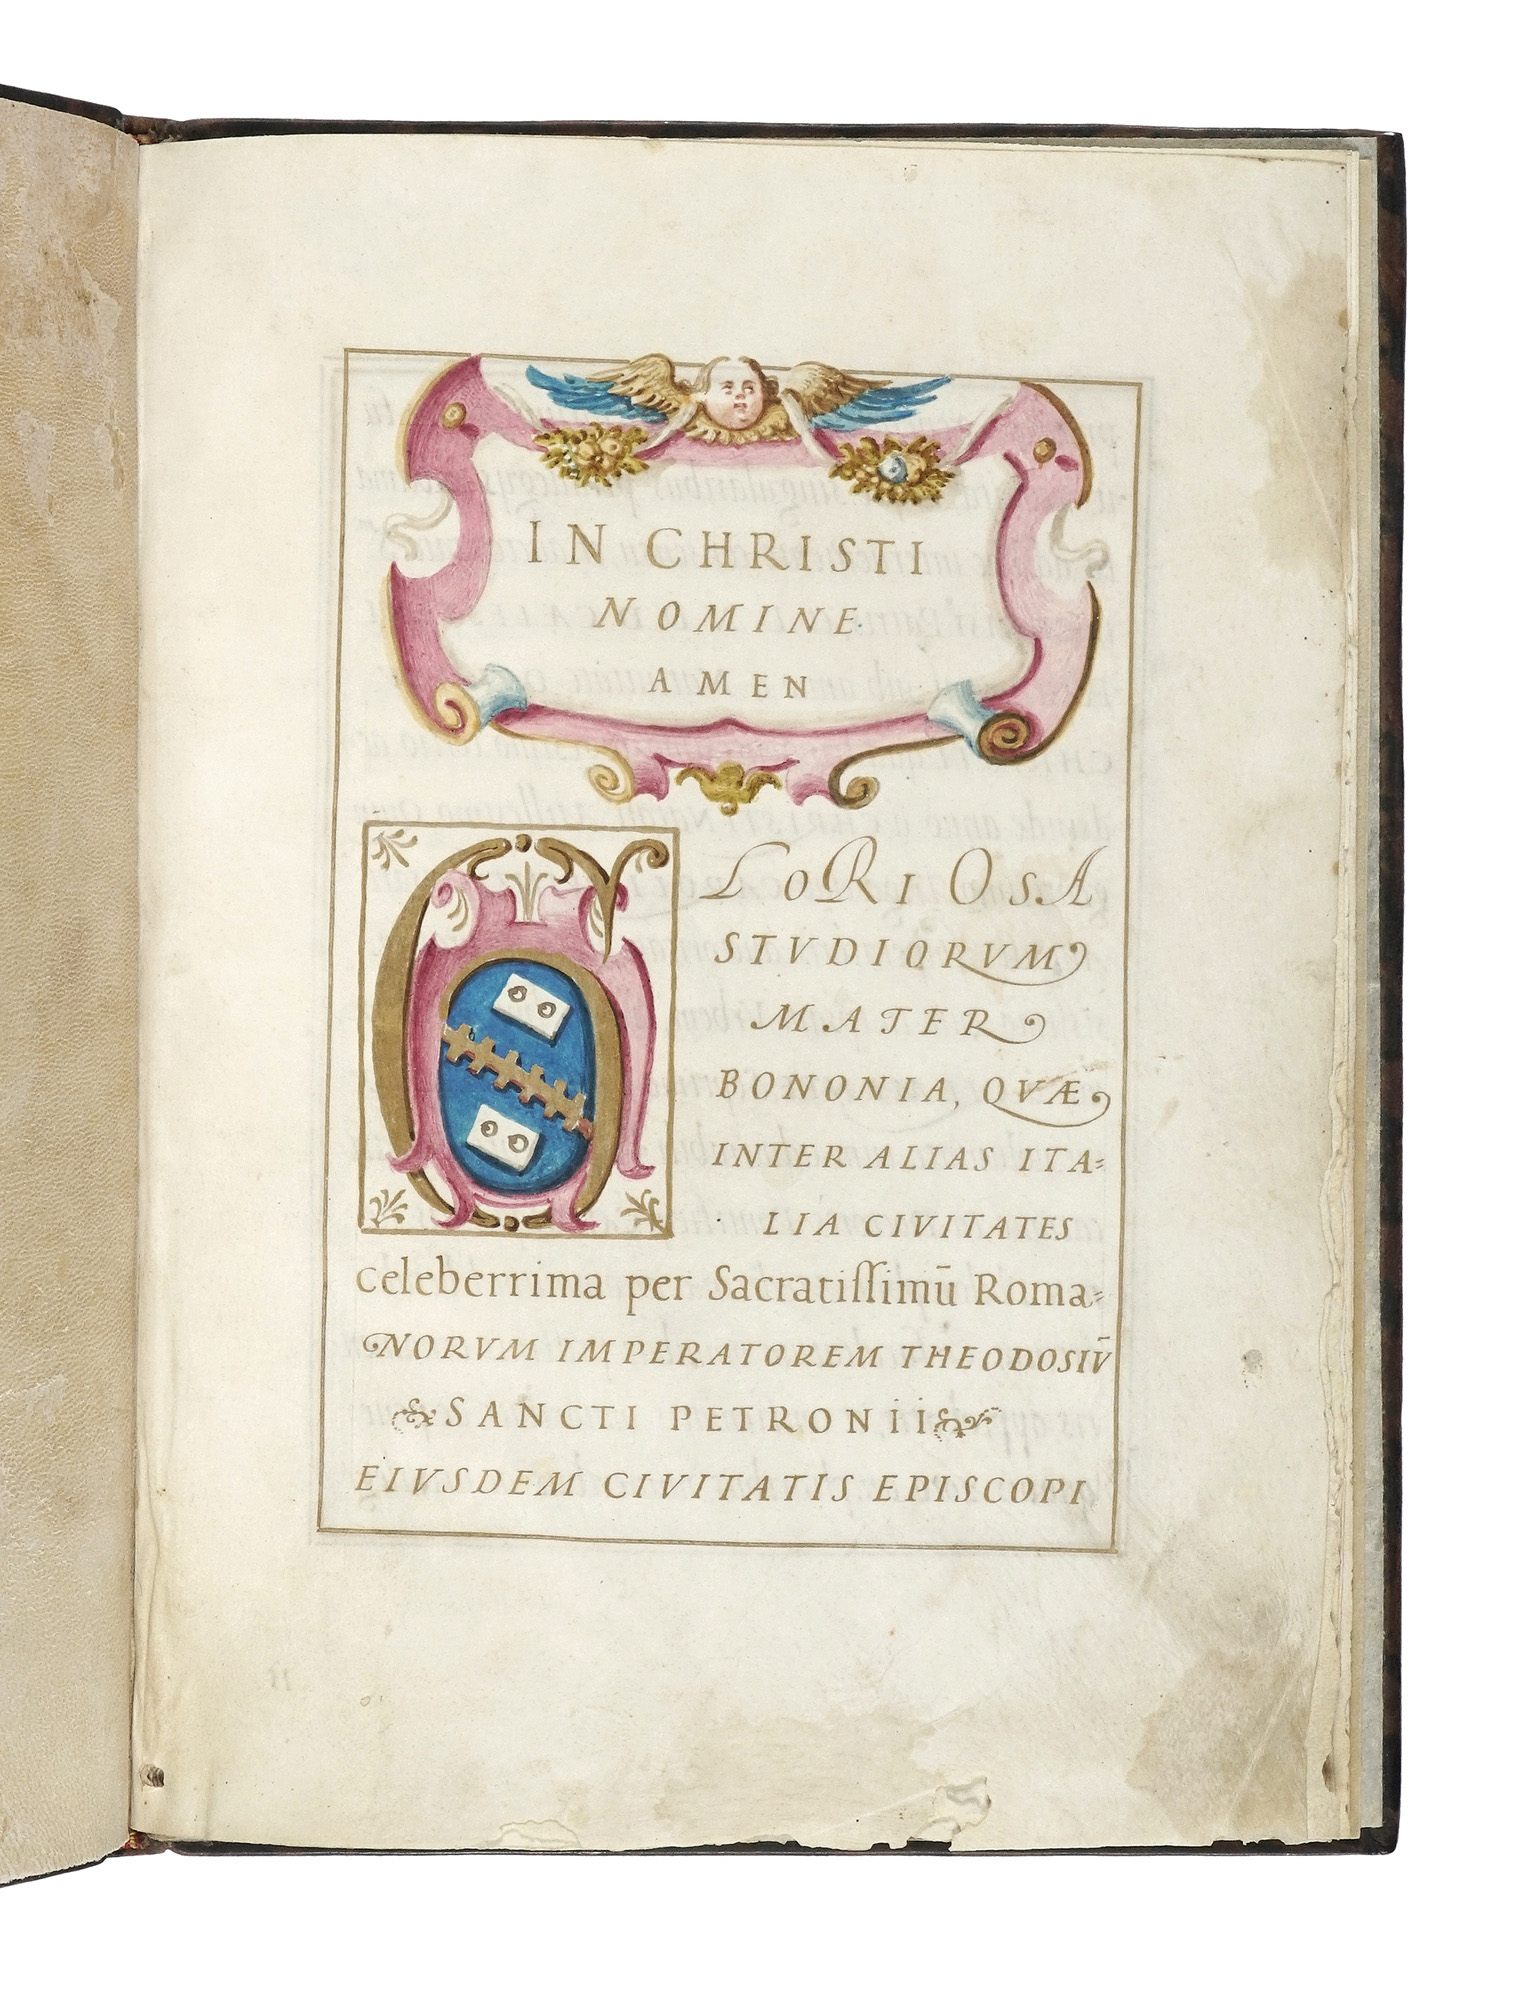 IN CHRISTI
NOMINE
AMEN
GLORIOSA
STVDIORVM
MATER
BONONIA, QVÆ
INTER ALIAS ITA=
LIA CIVITATES
celeberrima per Sacratiſſimū Roma=
NORVM IMPERATOREM THEODOSIV̄
SANCTI PETRONii
EIVSDEM CIVITATIS EPISCOPI